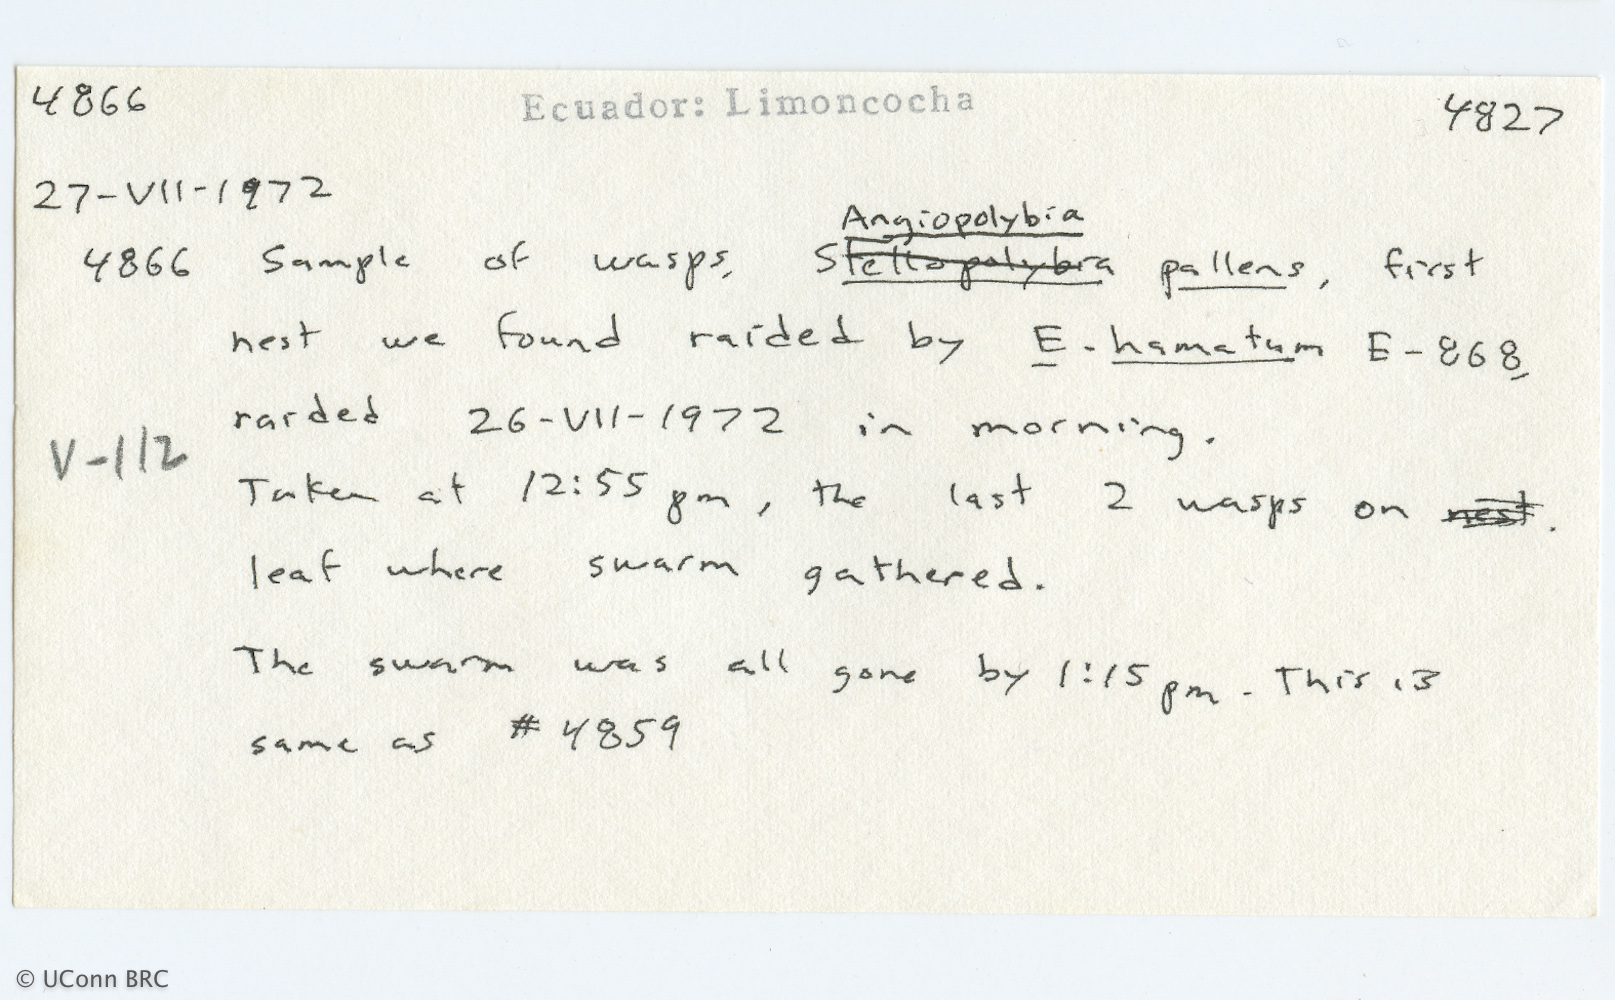 4866 Ecuador: Limoncocha 4827
27-VII-1972
Angiopolybia
4866 Sample of wasps, Stelopolybia pallens, first
nest we found raided by E. hamatum E-868,
raided 26-VII-1972 in morning.
V-112
Taken at 12:55 pm, the last 2 wasps on nest.
leaf where swarm gathered.
The swarm was all gone by 1:15 pm. This is
same as #4859
© UConn BRC